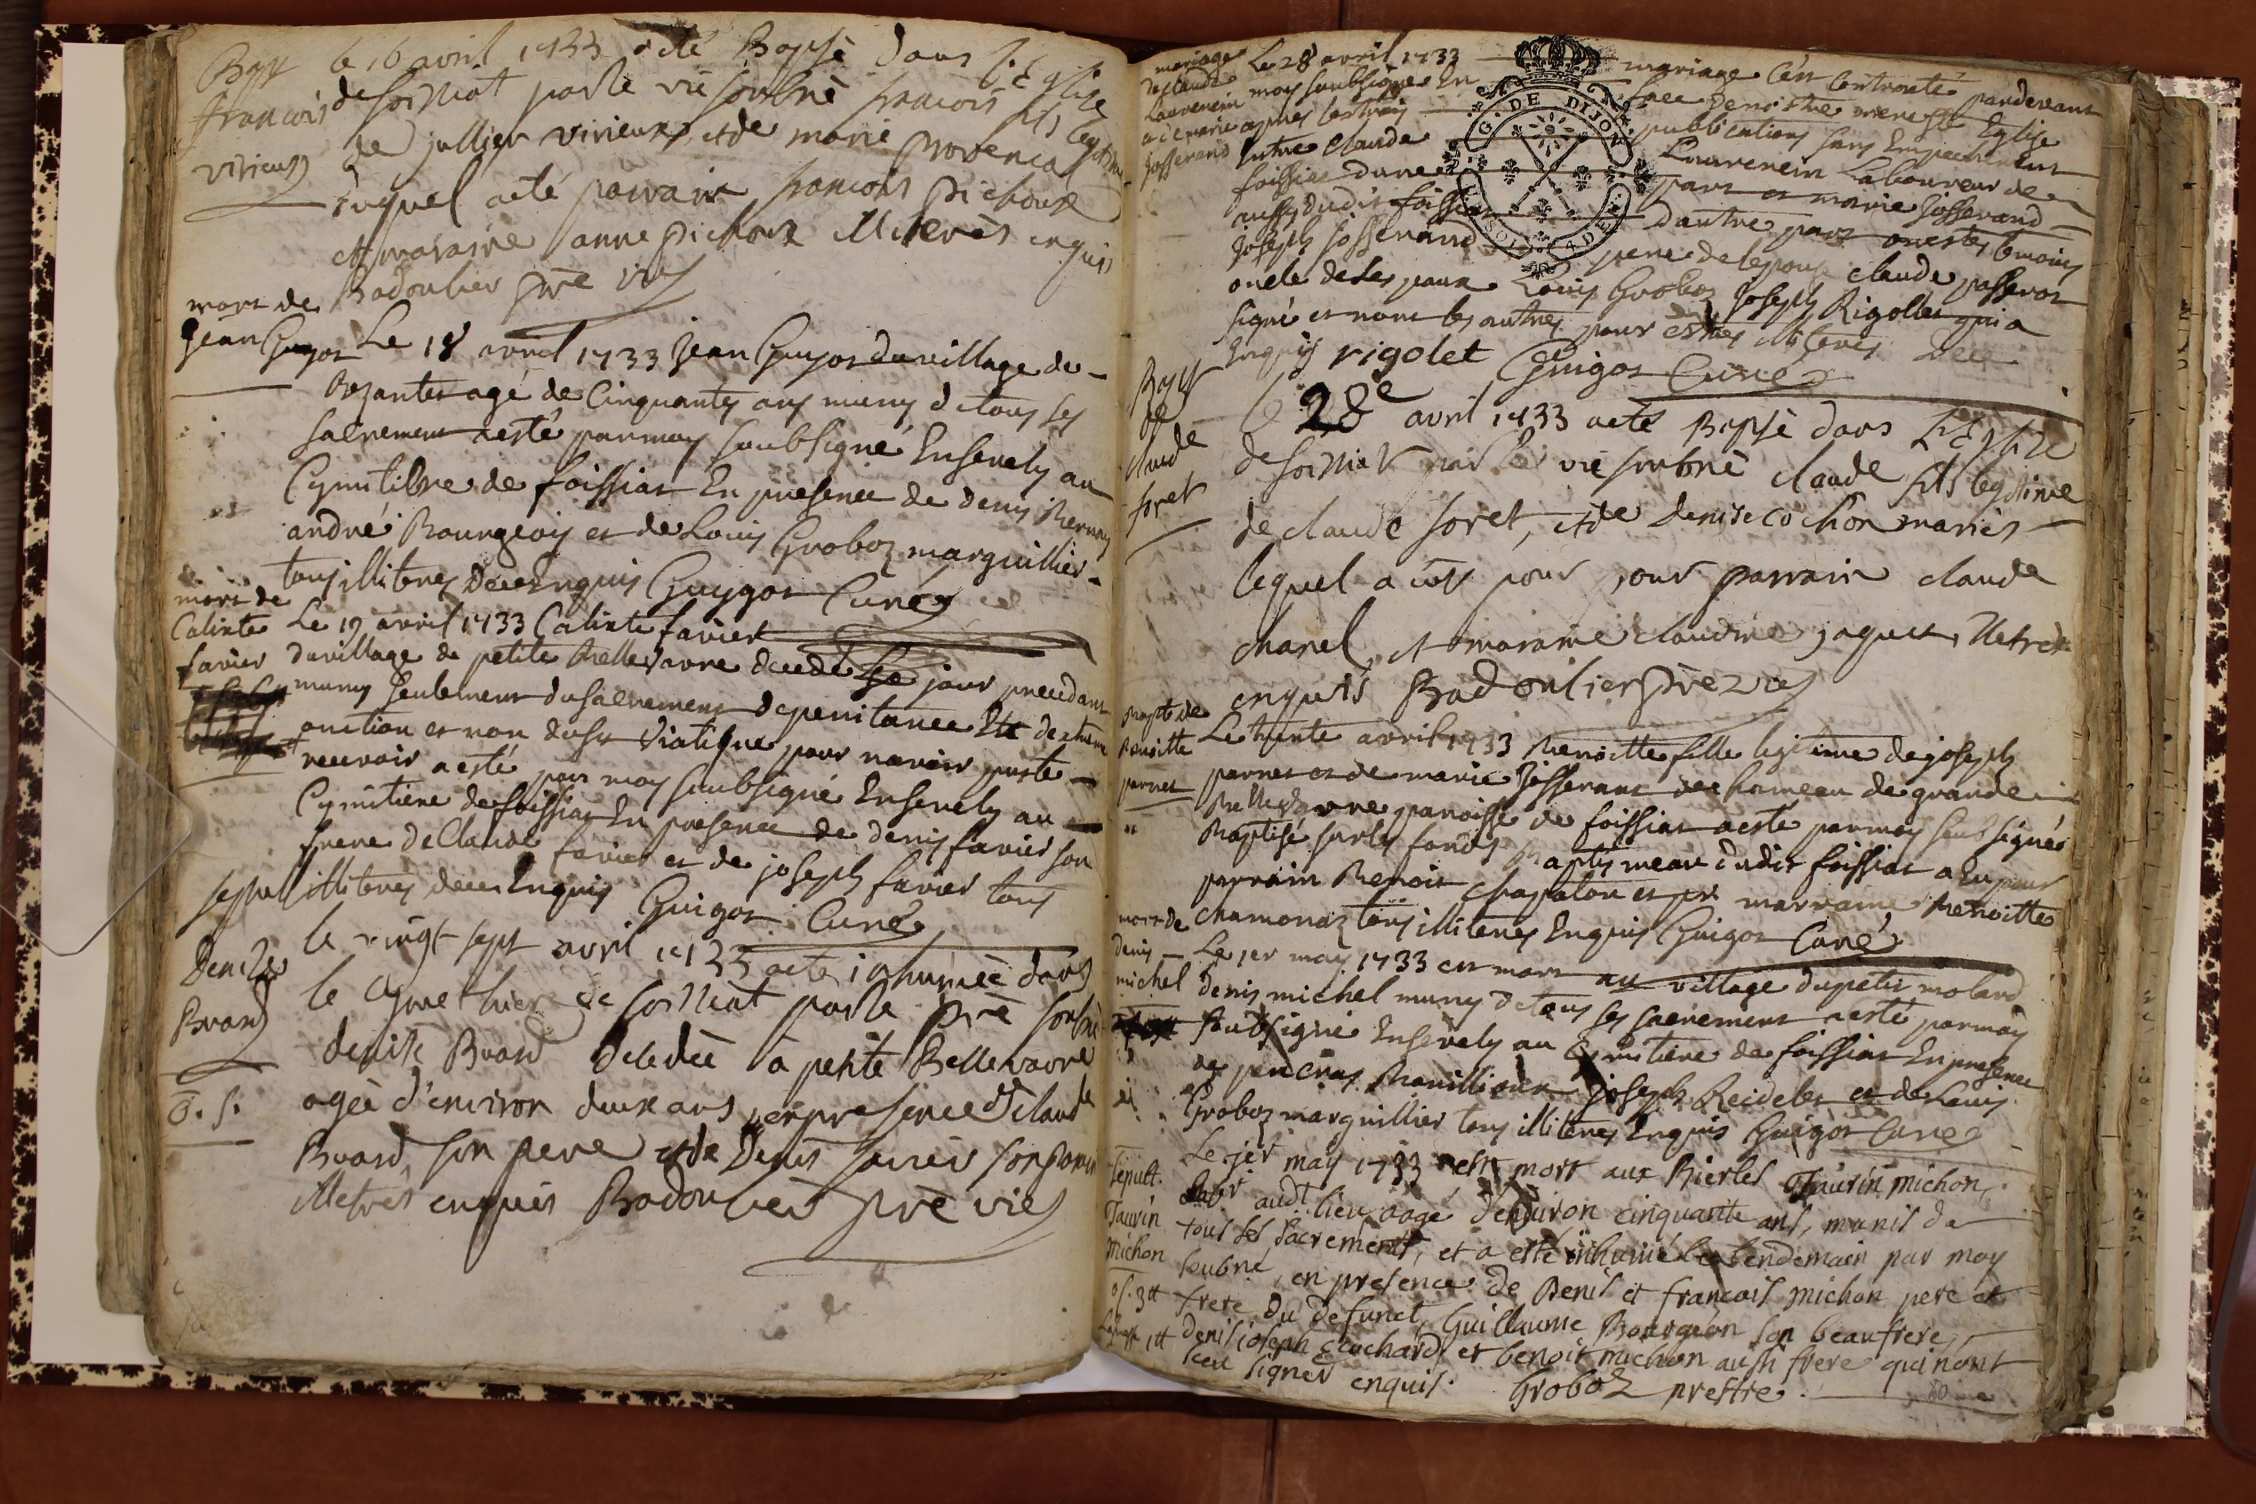 Bapt
françois
virieux
le 16 avril 1733 a eté Bapsé dans l'Eglize
de foissiat par le vié soubné françois fils legitime
de jullien virieux, et de marie provencal
lequel a eté parrain francois pichoux
et maraine anne pichoux illiterés enquis
Badoulier pre vié
mort de
Jean Guyot
Le 18 avril 1733 Jean Guyot du village de
agé de Cinquante ans muny de tous ses
sacrement a esté par moy soubsigné Ensevely au
Cymitiere de foissiat En presence de denis
andré Bourgeois et de Louis Groboz marguillier
tous illiteres de ce Enquis Guygot Curé
mort de
Calixte
favier
Le 19 avril 1733 Calixte favier
du village de petite Bellevavre decedé le jour precedant
muny seulement du sacrement de penitance et de extreme
onction et non du st viatique pour navoir puste
recevoir a esté par moy soubsigné Ensevely au
Cymitiere de foissiat En presence de denis favier son
frere de Claude favier et de joseph favier tous
illiteres de ce Enquis Guigot Curé
sepul
Denize
Buard
o. s.
le vingt sept avril 1733 a eté inhumée dans
le Cymethiere de foissiat par le pré soubné
denise Buard decedée à petite Bellevavre
agée d'environ deux ans, en presence de claude
Buard son pere et de Denis favier son parain
illetrés enquis Badoulier pré vié
mariage
de claude
Lauvencin
avec marie
Josserand
Le 28 avril 1733 mariage sest contracté pardevant
moy soubsigné En face de nostre mere ste Eglise
apres les trois publications sans Empechement
Entre Claude Lauvencin Laboureur de
foissiat dune part et marie Josserand
aussy dudit foissiat dautre part ont estes temoins
Joseph Josserand pere de lepouse claude passerot
oncle de les poux Louis Groboz Joseph Rigollet qui a
signé et nont les autres pour estres illiteres de ce
Enquis rigolet Guigot Curé
Bapt
de
claude
foret
le 28e avril 1733 a eté Bapsé dans l'Eglize
de foissiat par le vié soubné claude fils legitime
de claude foret, et de denise cochon mariés
lequel a eut pour parrain claude
chanel, et maraine claudine jaquet, illetrés
enquis Badoulier pré vié
Bapt de
Benoitte
pernet
Le trente avril 1733 Benoitte fille legitime de joseph
pernet et de marie Josserant du hameau de grande
Bellevavre paroisse de foissiat a esté par moy soubsignés
Baptisé sur les fonds Baptismeau dudit foissiat a Eu pour
parrain Benoit chapaton et pr marraine Benoitte
chamonaz tous illiteres Enquis Guigot Curé
mort de
denis
michel
Le 1er may 1733 est mort au village du petit molard
denis michel muny de tous ses sacrement a esté par moy
soubsigné Ensevely au Cymitiere de foissiat En presence
de Joseph Reidelet et de Louis
Groboz marguillier tous illiteres Enquis Guigot Curé
sepult.
Taurin
Michon
of. 3tt
1tt
Le 1er may 1733 est mort aux Bierles Taurin michon,
labr audt lieu agé d'environ cinquante ans, munis de
tous ses sacrements, et a esté inhumé le lendemain par moy
soubné, en presence de Denis et francois michon pere et
frere du defunct, Guillaume Bourgeon son beaufrere,
denis joseph Ecochard, et benoit michon aussi frere qui nont
sceu signer enquis. Groboz prestre.
80
G. DE DIJON